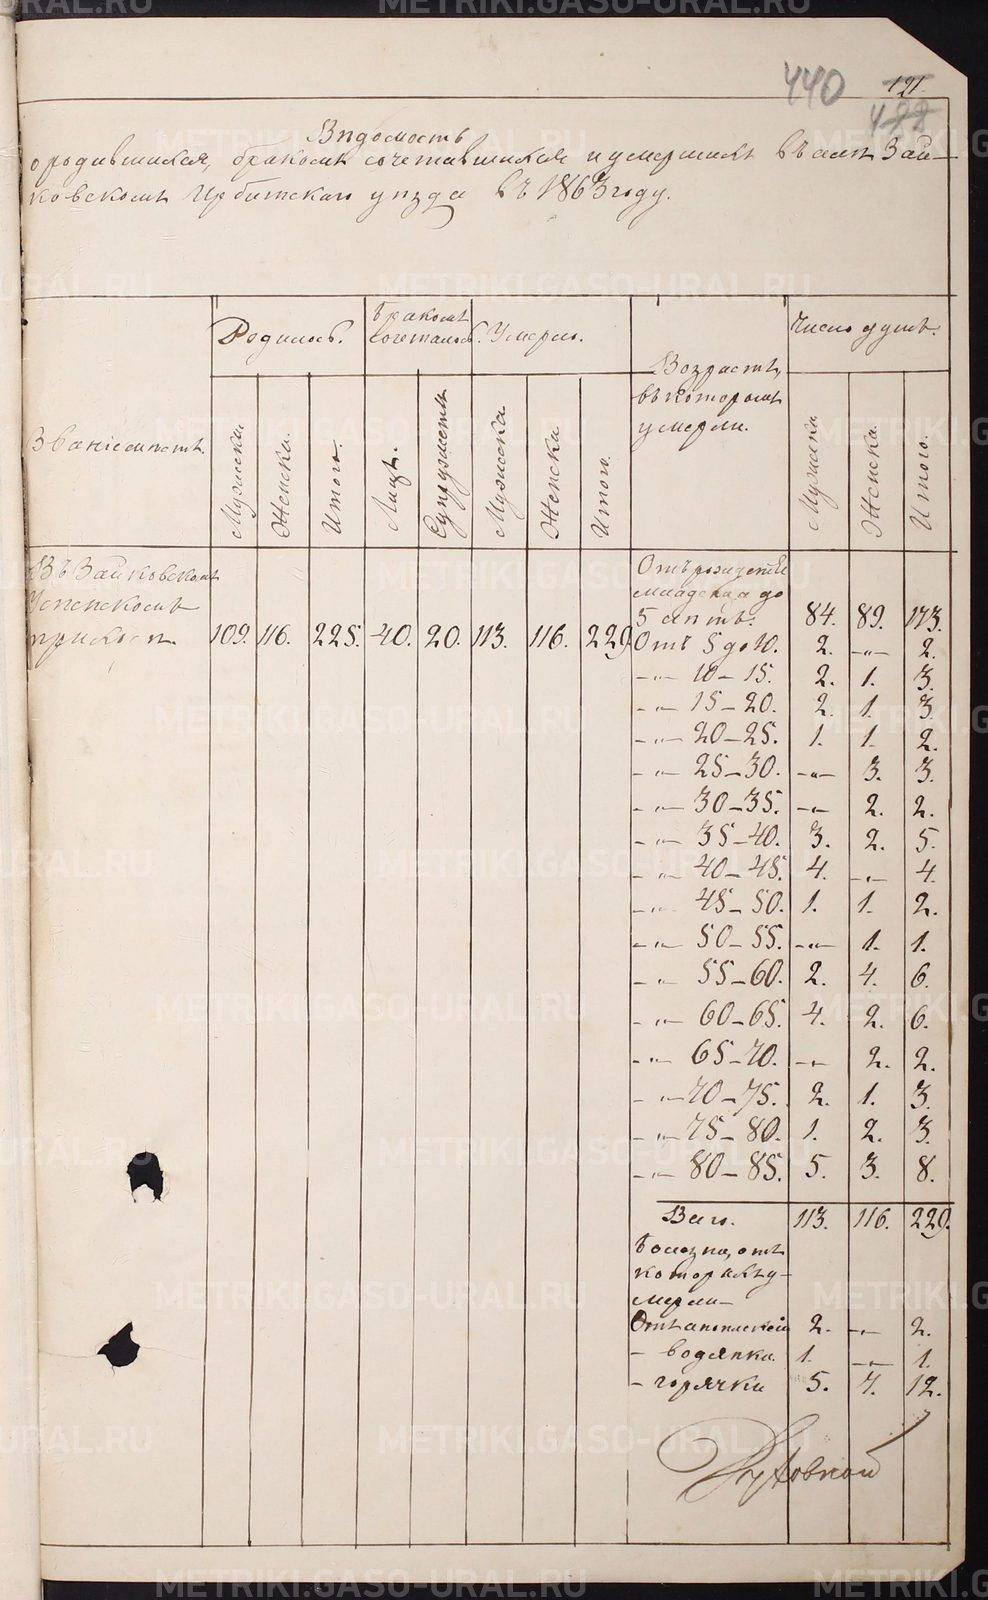 440
121.
488
Вѣдомость
о родившихся, бракомъ сочетавшихся и умершихъ въ селѣ Зай-
ковскомъ Ирбитскаго уѣзда въ 1863 году.
Званіе мѣстъ.
Родилось.
Бракомъ сочеталось.
Умерло.
Возрастъ, въ которомъ умерли.
Число душъ.
Мужеска Женска. Итого. Лицъ. Супружествъ Мужеска Женска Итого. Мужеска Женска. Итого.
Въ Зайковскомъ
Успенскомъ
приходѣ 109. 116. 225. 40. 20. 113. 116. 229.
Отъ рожденія
младенца до
5 лѣтъ. 84. 89. 173.
Отъ 5 до 10. 2. -„- 2.
-„- 10-15. 2. 1. 3.
-„- 15-20. 2. 1. 3.
-„- 20-25. 1. 1. 2.
-„- 25-30. -„- 3. 3.
-„- 30-35. -„- 2. 2.
-„- 35-40. 3. 2. 5.
-„- 40-45. 4. -„- 4.
-„- 45-50. 1. 1. 2.
-„- 50-55. -„- 1. 1.
-„- 55-60. 2. 4. 6.
-„- 60-65. 4. 2. 6.
-„- 65-70. -„- 2. 2.
-„- 70-75. 2. 1. 3.
-„- 75-80. 1. 2. 3.
-„- 80-85. 5. 3. 8.
Всего. 113. 116. 229.
Болѣзни, отъ
которыхъ у-
мерли-
Отъ апоплексіи 2. -„- 2.
- водянки. 1. -„- 1.
- горячки 5. 7. 12.
METRIKI.GASO-URAL.RU